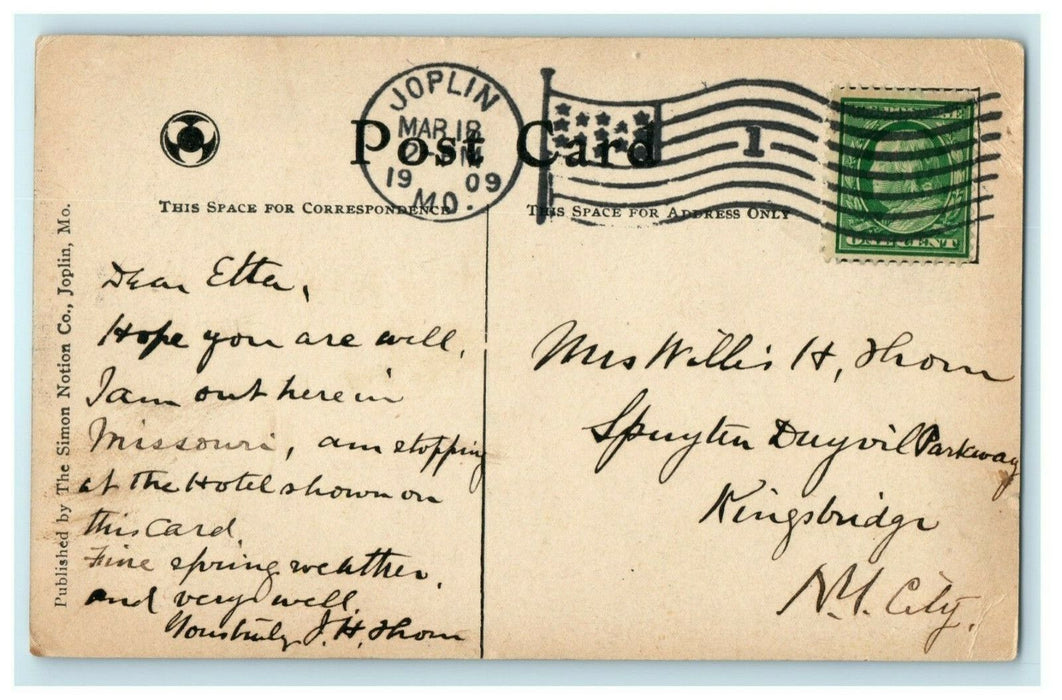 JOPLIN
MAR 18
19 09
MO.
1
Post Card
THIS SPACE FOR CORRESPONDENCE
THIS SPACE FOR ADDRESS ONLY
ONE CENT
Published by The Simon Notion Co., Joplin, Mo.
Dear Etta,
Hope you are well.
I am out here in
Missouri, am stopping
at the Hotel shown on
this card.
Fine spring weather.
and very well.
Yours truly J. H. Thorn
Mrs Willis H. Thorn
Spuyten Duyvil Parkway
Kingsbridge
N.Y. City.